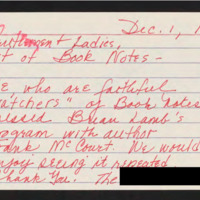 Dec. 1, 1
& Ladies,
of Book Notes -
who are faithful
watchers" of Book Notes
missed Brian Lamb's
program with author
Frank McCourt. We would
enjoy seeing it repeated
Thank You. The